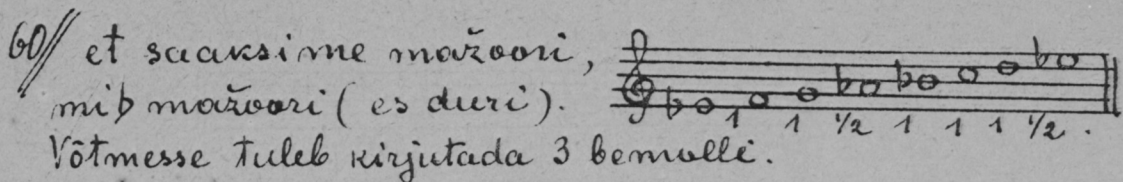 60// et saaksime mažoori,
mi♭ mažoori (es duri).
1 1 ½ 1 1 1 ½ .
Võtmesse tuleb kirjutada 3 bemolli.